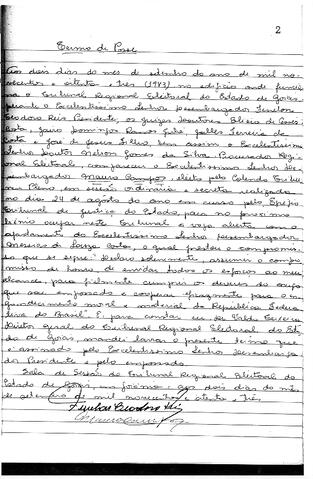 2
Termo de Posse
Aos dois dias do mês de setembro do ano de mil no-
vecentos e oitenta e três (1983) no edifício onde funcio-
na o Tribunal Regional Eleitoral do Estado de Goiás,
perante o Excelentíssimo Senhor Desembargador Fenelon
Teodoro Reis Presidente, os Juízes Doutores
Jairo Domingos Ramos Jubé, Geller Ferreira da
Costa e José de Jesus Filho, bem assim o Excelentíssimo
Senhor Doutor Nelson Gomes da Silva Procurador Regio-
nal Eleitoral, compareceu o Excelentíssimo Senhor De-
sembargador Mauro Campos, eleito pelo Colendo Tribu-
nal Pleno em sessão ordinária e secreta realizada
no dia 24 de agosto do ano em curso pelo Egrégio
Tribunal de Justiça do Estado, para no próximo
biênio ocupar neste Tribunal a vaga aberta com o
afastamento do Excelentíssimo Senhor Desembargador
de Souza Costa, o qual prestou o compromis-
so que se segue: "Declaro solenemente, assumir o compro-
misso de honra, de envidar todos os esforços ao meu
alcance, para fielmente cumprir os deveres do cargo
que ora empossado e cooperar para o en-
grandecimento moral e material da República Federa-
tiva do Brasil". E para constar eu
Diretor Geral do Tribunal Regional Eleitoral do Esta-
do de Goiás, mandei lavrar o presente termo que
é assinado pelo Excelentíssimo Senhor Desembarga-
dor Presidente e pelo empossado.
Sala de Sessões do Tribunal Regional Eleitoral do
Estado de Goiás, em Goiânia, aos dois dias do mês
de setembro de mil novecentos e oitenta e três.
Fenelon Teodoro Reis